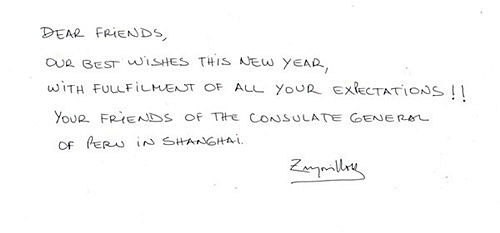 DEAR FRIENDS,
OUR BEST WISHES THIS NEW YEAR,
WITH FULLFILMENT OF ALL YOUR EXPECTATIONS !!
YOUR FRIENDS OF THE CONSULATE GENERAL
OF PERU IN SHANGHAI.